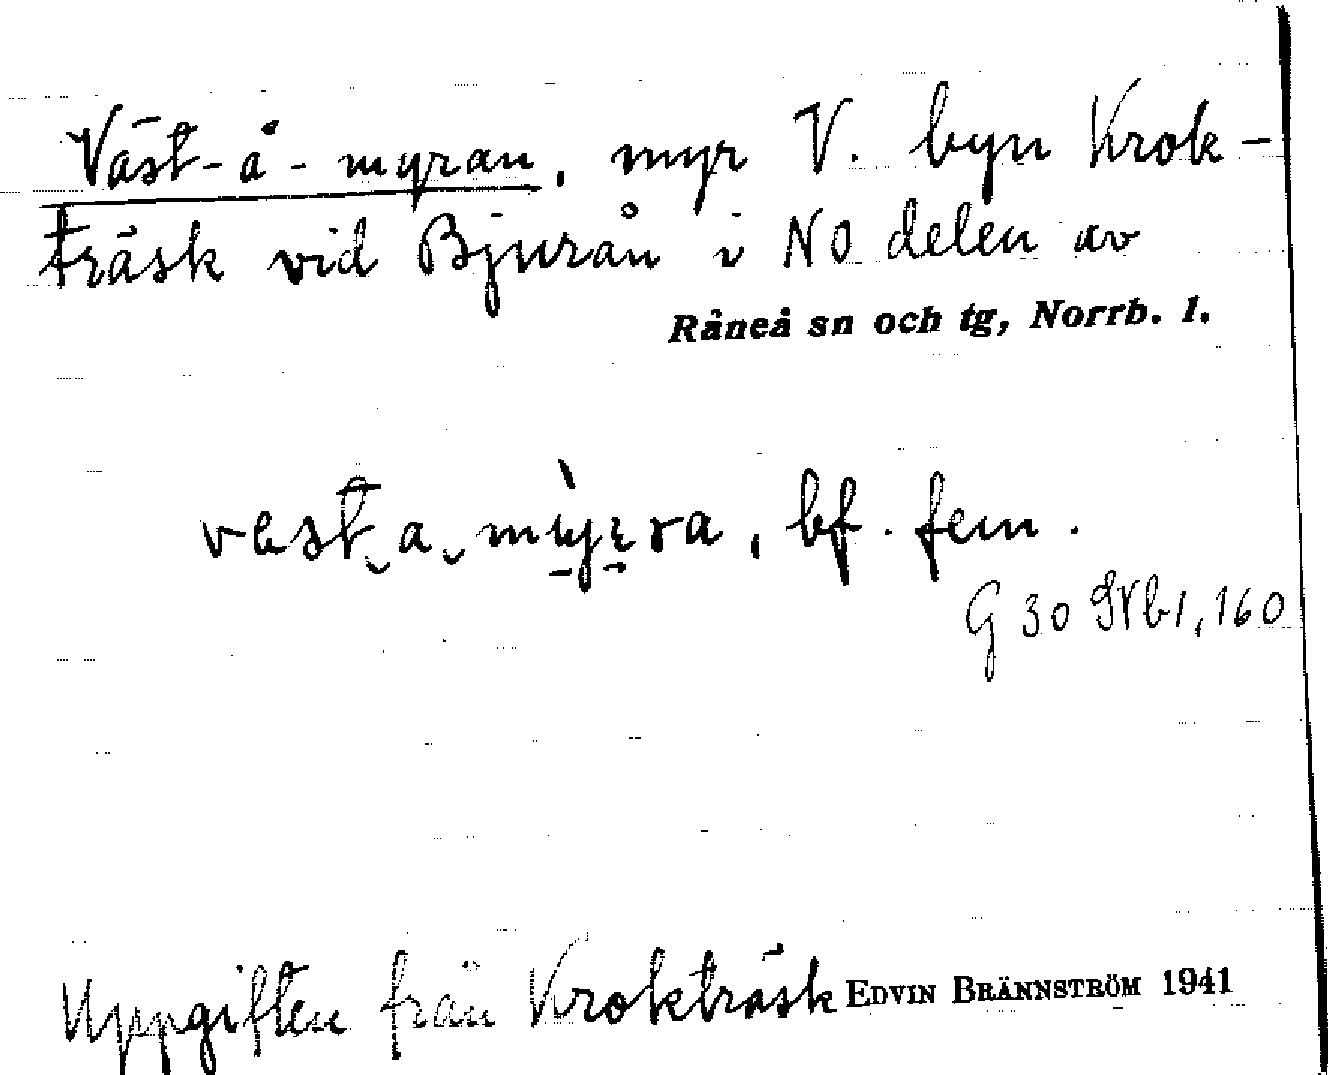 Väst-å-myran, myr V. byn Krok-
träsk vid Bjurån i NO delen av
Råneå sn och tg, Norrb. l.
vest a mỳrra, bf. fem.
G 30 SNb1, 160
Uppgiften från Krokträsk EDVIN BRÄNNSTRÖM 1941